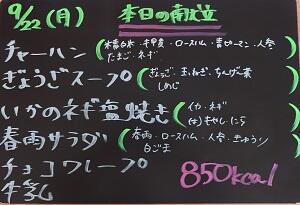 9/22(月) 本日の献立
チャーハン(精白米・牛甲皮・ロースハム・青ピーマン・人参
たまご・ネギ
ぎょうざスープ(ぎょうざ・玉ねぎ・ちんげん菜
しめじ
いかのネギ塩焼き(イカ・ネギ
(ほ)もやし、にら
春雨サラダ(春雨・ロースハム・人参・きゅうり
白ごま
チョコクレープ
牛乳 850kcal